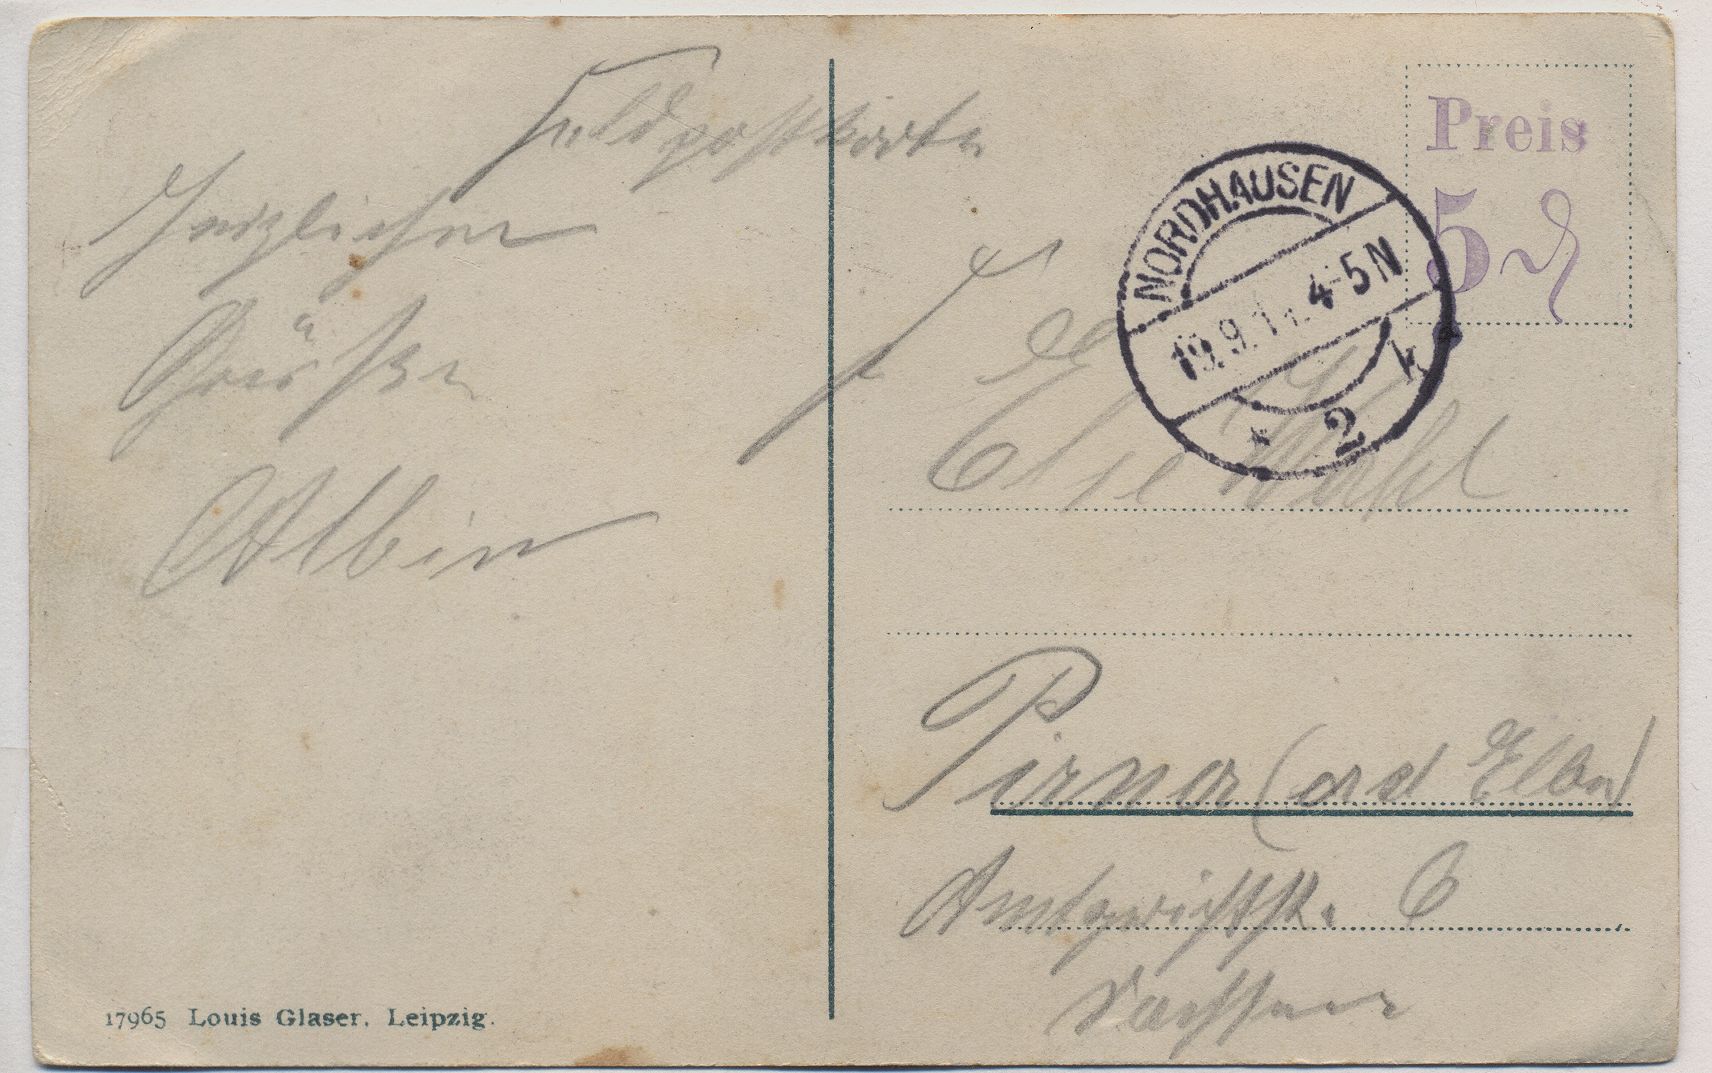 Feldpostkarte
Herzlichen
Grüße
Albin
17965 Louis Glaser, Leipzig.
Preis
5 ₰
NORDHAUSEN
19.9.1 4-5 N
* 2 k
Frl.
Else Wahl
Pirna (a/d Elbe)
Amtsgerichtstr. 6
Sachsen